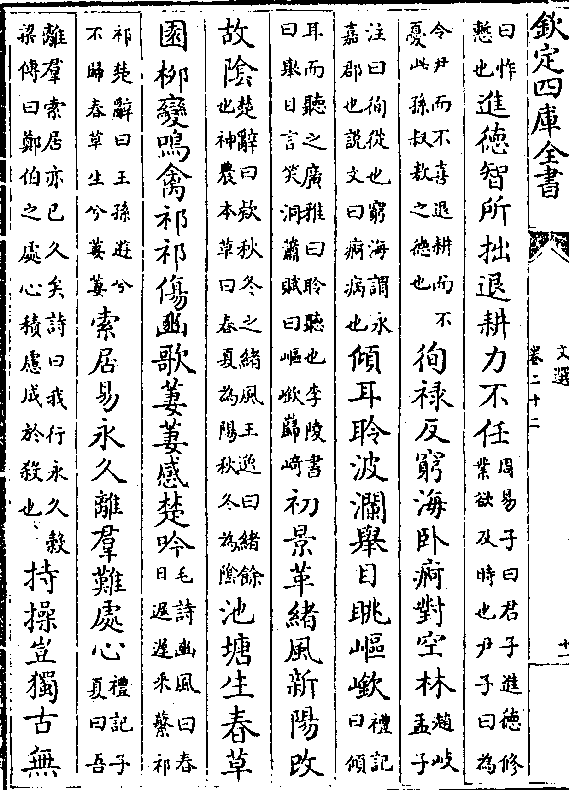 欽定四庫全書
文選
卷二十二
十一
曰怍慙也進德智所拙退耕力不任周易子曰君子進德修業欲及時也尹子曰為
令尹而不喜退耕而不憂此孫叔敖之德也徇禄反窮海卧痾對空林趙岐孟子
注曰徇從也窮海謂永嘉郡也説文曰痾病也傾耳聆波瀾舉目眺嶇嶔禮記曰傾
耳而聽之廣雅曰聆聽也李陵書曰舉目言笑洞簫賦曰嶇嶔巋崎初景革緒風新陽改
故陰楚辭曰欸秋冬之緒風王逸曰緒餘也神農本草曰春夏為陽秋冬為陰池塘生春草
園栁變鳴禽祁祁傷豳歌萋萋感楚吟毛詩豳風曰春日遲遲采蘩祁
祁楚辭曰王孫遊兮不歸春草生兮萋萋索居易永久離羣難處心禮記子夏曰吾
離羣索居亦已久矣詩曰我行永久穀梁傳曰鄭伯之處心積慮成於殺也持操豈獨古無